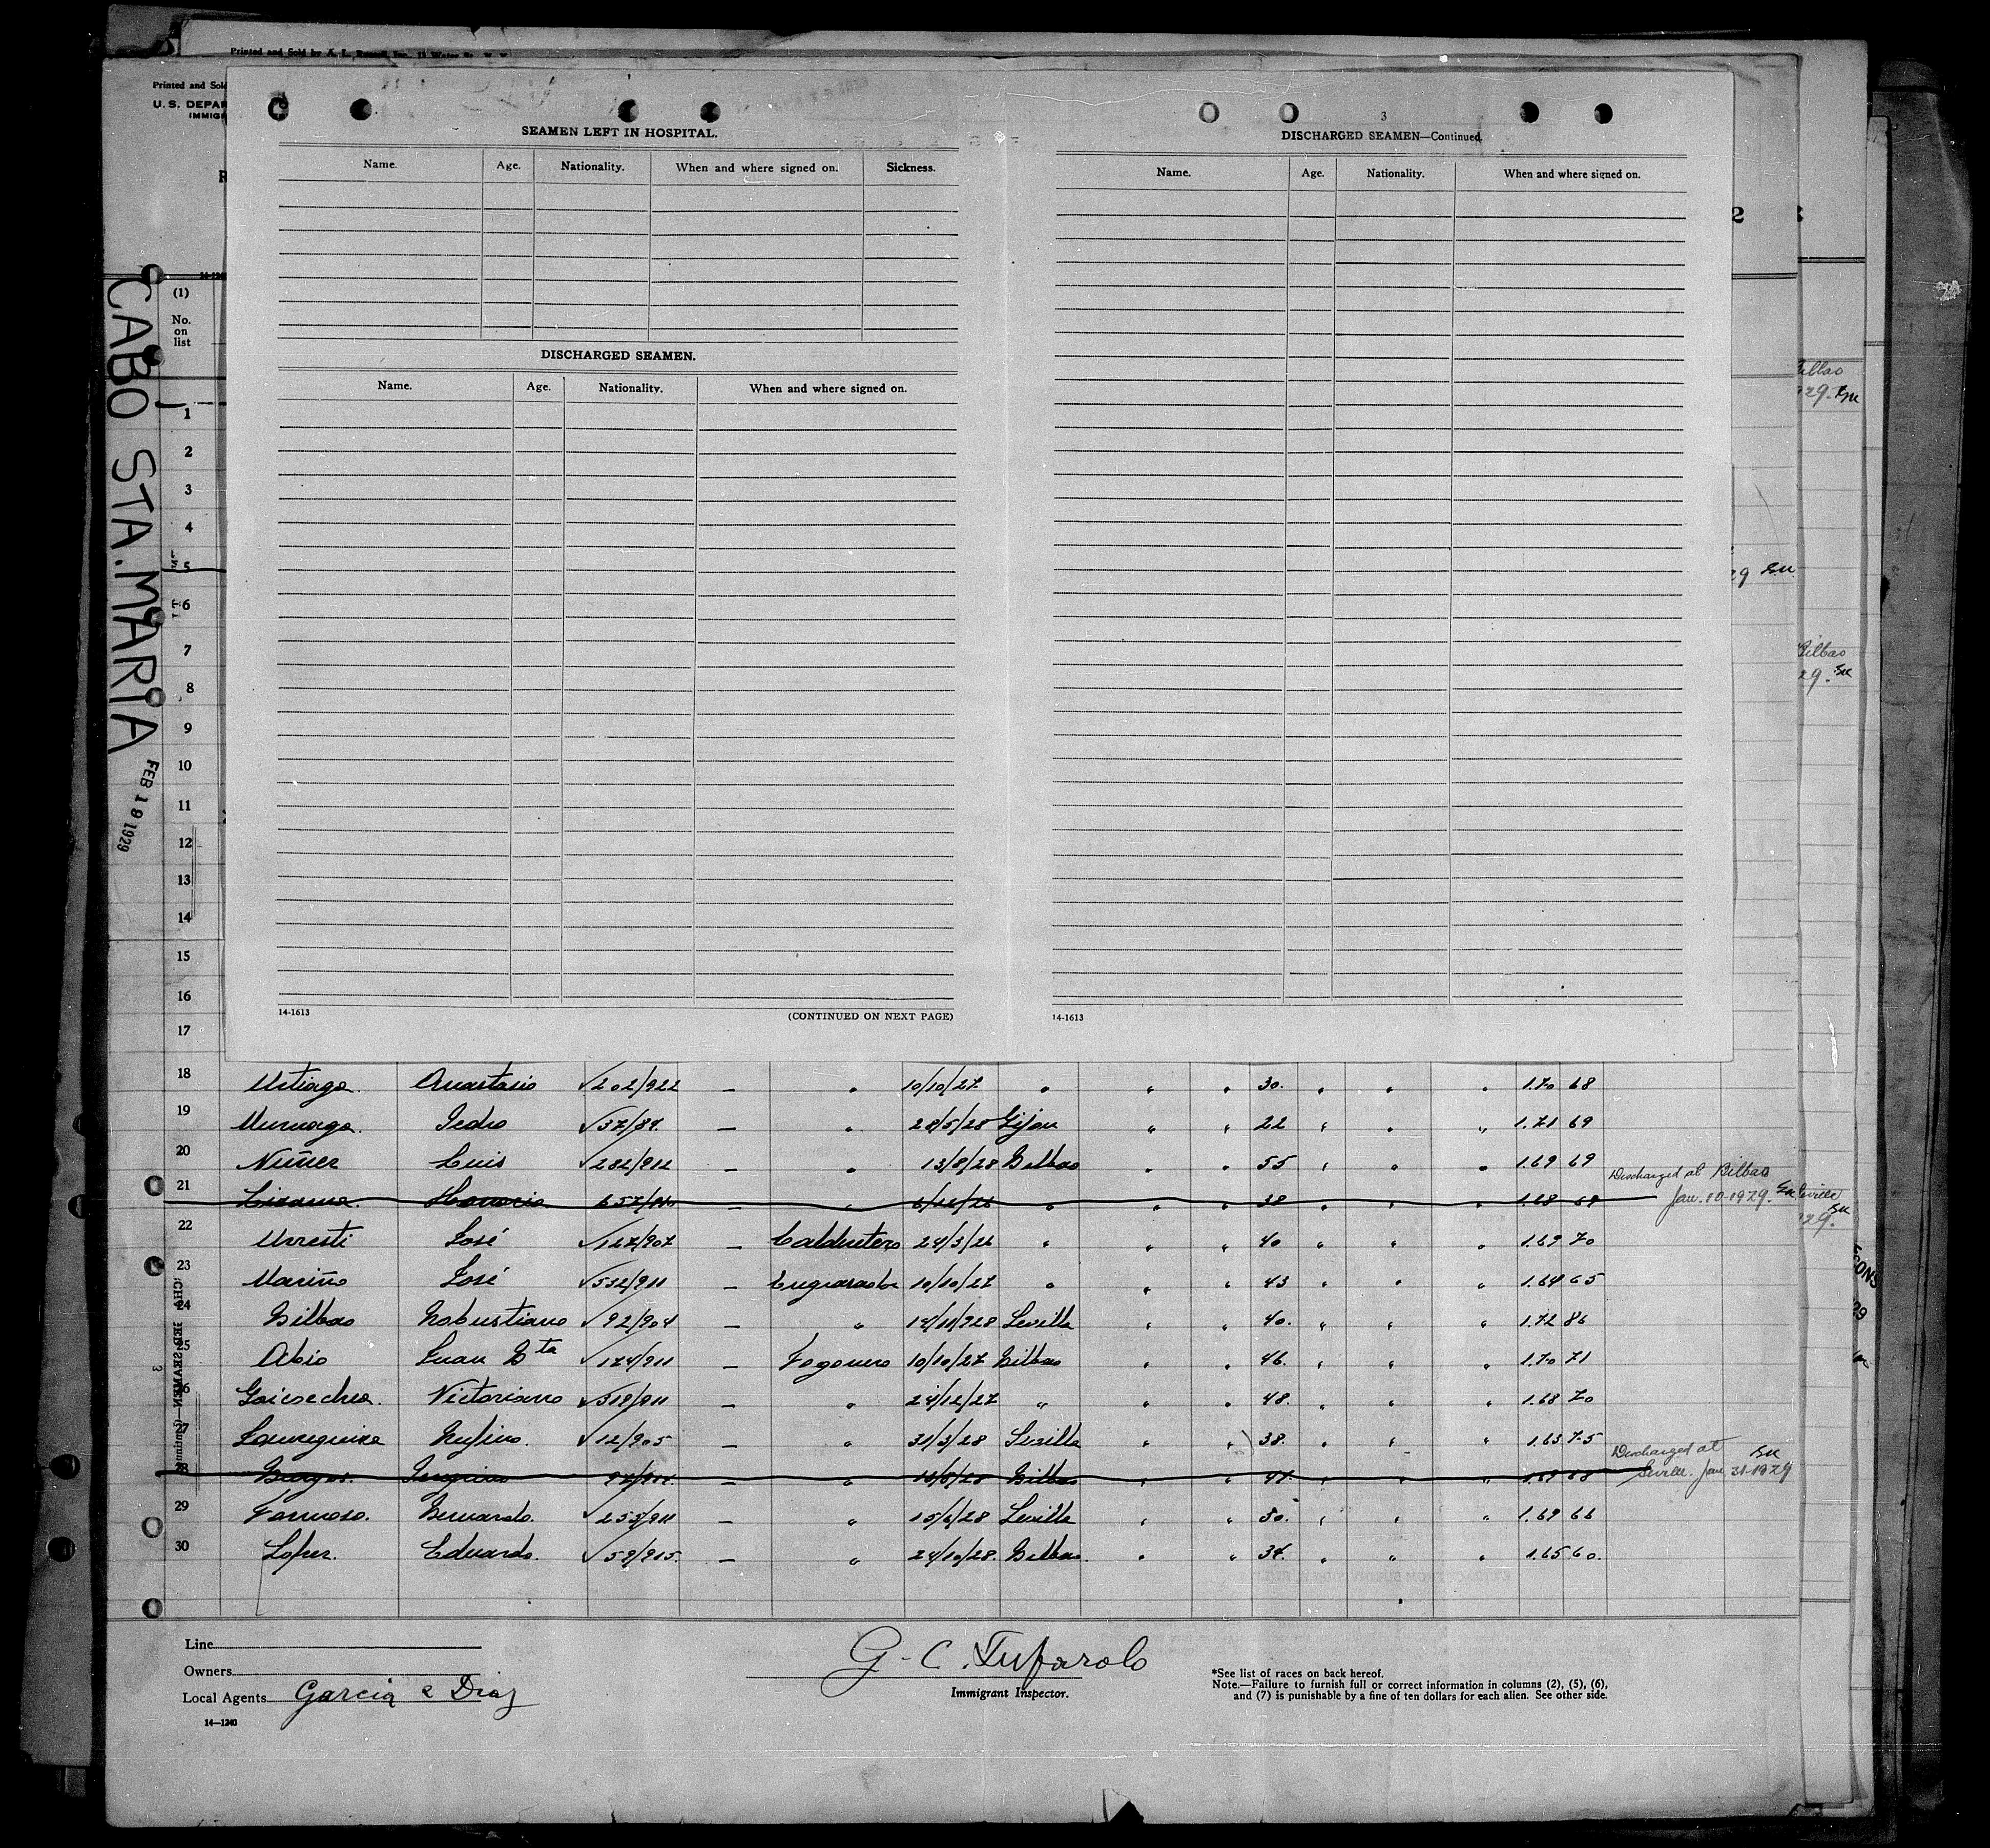 Printed and Sold by A. L. Russell, Inc.
Printed and Sold
U. S. DEPAR
IMMIGR
CABO STA. MARIA
FEB 19 1929
(1)
No.
on
list
3
SEAMEN LEFT IN HOSPITAL.
Name. Age. Nationality. When and where signed on. Sickness.
DISCHARGED SEAMEN.
Name. Age. Nationality. When and where signed on.
14-1613 (CONTINUED ON NEXT PAGE)
DISCHARGED SEAMEN—Continued.
Name. Age. Nationality. When and where signed on.
14-1613
1
2
3
4
5
6
7
8
9
10
11
12
13
14
15
16
17
18 Anastasio 202/922 — " 10/10/27 " " " 30. " " " 1.70 68
19 Pedro 37/84 — " 28/5/28 Gijon " " 22 " " " 1.71 69
20 Nuñez Luis 282/912 — " 13/8/28 Bilbao " " 55 " " " 1.69 69
21 Lizama Honorio " " " " 38 " " " 1.68 69 Discharged at Bilbao Jan. 10-1929.
22 Urresti José 127/907 — Calderetero 24/3/26 " " " 40 " " " 1.69 70
23 Mariño José 532/911 — Engrasador 10/10/27 " " " 43 " " " 1.64 65
24 Bilbao Robustiano 92/904 — " 14/11/928 Sevilla " " 40. " " " 1.72 86
25 Abio Juan Bta 174/911 — Fogonero 10/10/27 Bilbao " " 46. " " " 1.70 71
26 Goicoechea. Victoriano 519/911 — " 24/12/27 " " " 48. " " " 1.68 70
27 Rufino. 12/905 — " 31/3/28 Sevilla " " 38. " " " 1.63 75
28 Burgos. — " Bilbao " " 47. " " " 1.69 68 Discharged at Seville. Jan 31-1929
29 Formoso. Bernardo. 255/911 — " 15/6/28 Sevilla " " 50. " " " 1.69 66
30 Lopez. Eduardo. 59/915. — " 24/10/28. Bilbao. " " 34. " " " 1.65 60.
Line
Owners
Local Agents Garcia & Diaz
14—1240
G. C. Tufarolo
Immigrant Inspector.
*See list of races on back hereof.
Note.—Failure to furnish full or correct information in columns (2), (5), (6),
and (7) is punishable by a fine of ten dollars for each alien. See other side.